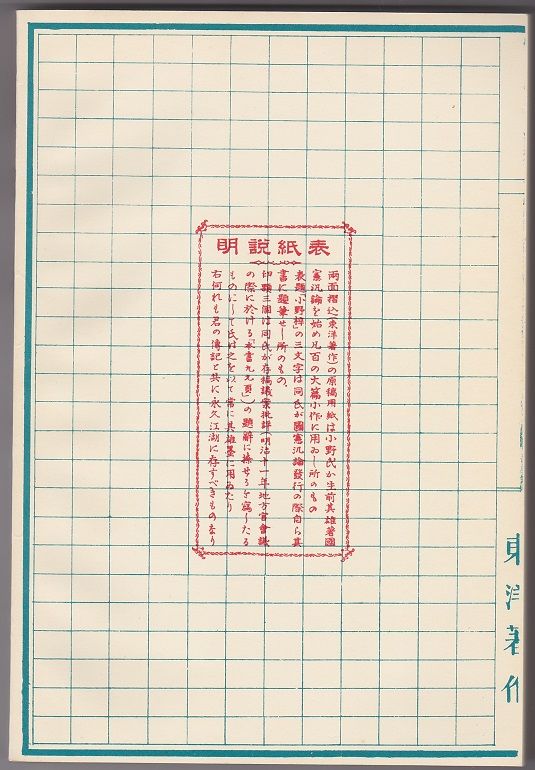 表紙説明
両面摺込(東洋著作)の原稿用紙は小野氏が生前其雄著國
憲汎論を始め凡百の大篇小作に用ゐし所のもの
表題「小野梓」の三文字は同氏が國憲汎論發行の際自ら其
書に題簽せし所のもの、
印顆三個は同氏が存稿議案批評(明治十一年地方官會議
の際に於ける「本書九九頁」)の題辭に捺せるを寫したる
ものにして氏は之を以て常に其雄墨に用ゐたり
右何れも君の傳記と共に永久江湖に存すべきものなり
東洋著作